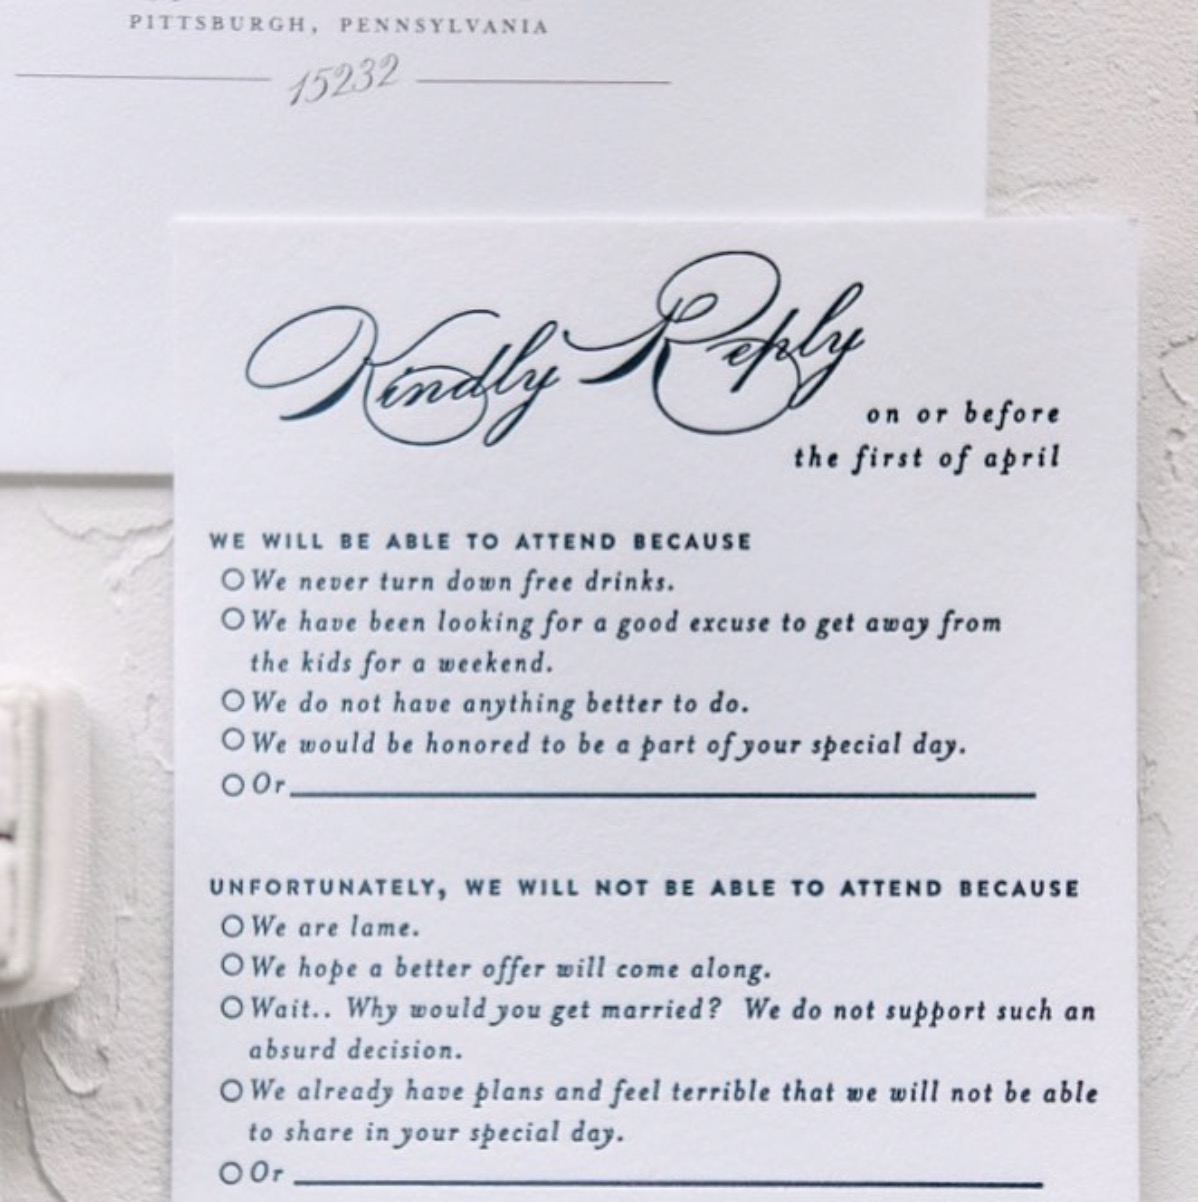 PITTSBURGH, PENNSYLVANIA
15232
Kindly Reply
on or before
the first of april
WE WILL BE ABLE TO ATTEND BECAUSE
We never turn down free drinks.
We have been looking for a good excuse to get away from
the kids for a weekend.
We do not have anything better to do.
We would be honored to be a part of your special day.
Or
UNFORTUNATELY, WE WILL NOT BE ABLE TO ATTEND BECAUSE
We are lame.
We hope a better offer will come along.
Wait.. Why would you get married? We do not support such an
absurd decision.
We already have plans and feel terrible that we will not be able
to share in your special day.
Or